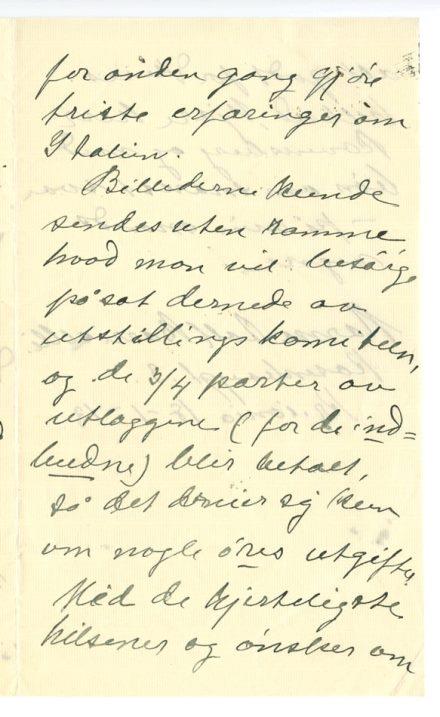 for anden gang gjøre
triste erfaringer om
Italien.
Billederne kunde
sendes uten ramme
hvad man vil besørge
påsat dernede av
utstillingskomiteen,
og de 3/4 parter av
utlæggene (for de ind=
budne) blir betalt,
så det dreier sig kun
om nogle øres utgifter.
Med de hjerteligste
hilsener og ønsker om